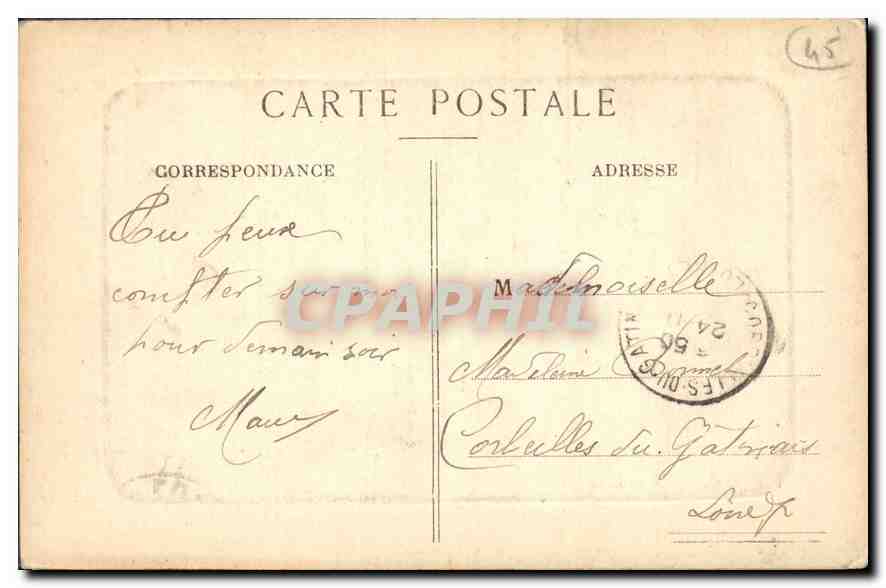 45
CARTE POSTALE
CORRESPONDANCE
Tu peux
compter sur moi
pour demain soir
ADRESSE
Mademoiselle
Madeleine
Corbeilles du Gâtinais
Loiret
CPAPHIL